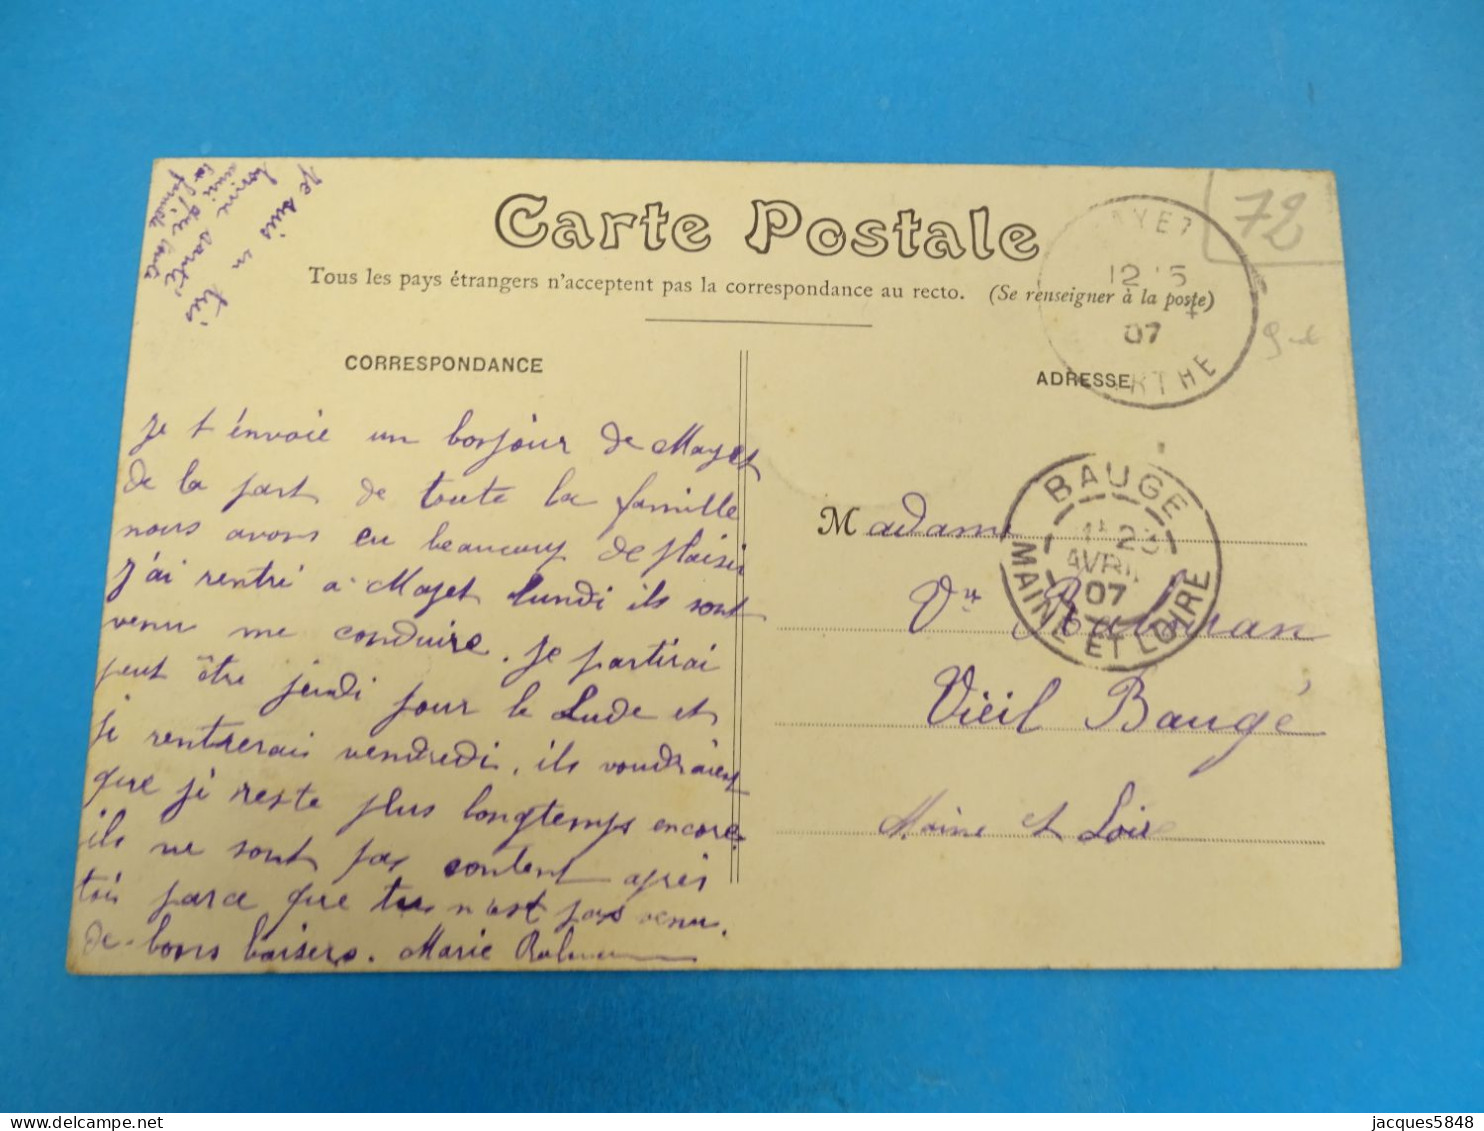 Carte Postale
Tous les pays étrangers n'acceptent pas la correspondance au recto. (Se renseigner à la poste)
CORRESPONDANCE
ADRESSE
Je suis en très
bonne santé
ainsi que toute
la famille
Je t'énvoie un bonjour de Mayet
de la part de toute la famille
nous avons eu beaucoup de plaisir
j'ai rentré a Mayet lundi ils sont
venu me conduire. Je partirai
peut être jeudi pour le Lude et
je rentrerais vendredi. ils voudraient
que je reste plus longtemps encore
ils ne sont pas content après
toi parce que tu n'est pas venu.
de bons baisers. Marie
Madame
Vve
Vieil Baugé
Maine et Loire
AYET
12 15
07
RTHE
BAUGE
23
AVRIL
07
MAINE ET LOIRE
72
jacques5848